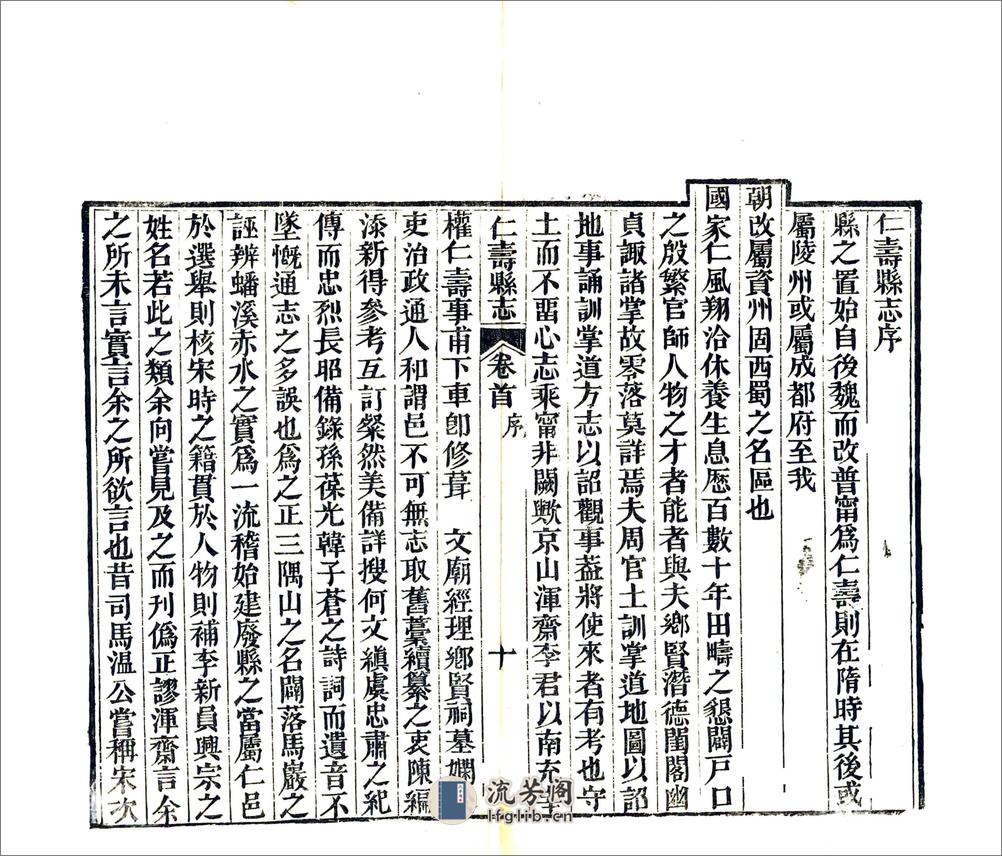 仁壽縣志序
縣之置始自後魏而改普甯爲仁壽則在隋時其後或
屬陵州或屬成都府至我
朝改屬資州固西蜀之名區也
國家仁風翔洽休養生息歷百數十年田疇之懇闢戸口
之殷繁官師人物之才者能者與夫鄉賢潛德閨閣幽
貞諏諸掌故零落莫詳焉夫周官土訓掌道地圖以詔
地事誦訓掌道方志以詔觀事葢將使來者有考也守
土而不畱心志乘甯非闕歟京山渾齋李君以南充
仁壽縣志 卷首 序 十
權仁壽事甫下車卽修葺 文廟經理鄉賢祠墓嫻
吏治政通人和謂邑不可無志取舊藁續纂之衷陳編
添新得參考互訂粲然美備詳搜何文縝虞忠肅之紀
傳而忠烈長昭備錄孫葆光韓子蒼之詩詞而遺音不
墜慨通志之多誤也爲之正三隅山之名闢落馬巖之
誣辨蟠溪赤水之實爲一流稽始建廢縣之當屬仁邑
於選舉則核宋時之籍貫於人物則補李新員興宗之
姓名若此之類余向嘗見及之而刊僞正謬渾齋言余
之所未言實言余之所欲言也昔司馬溫公嘗稱宋次
流芳阁
lfglib.cn